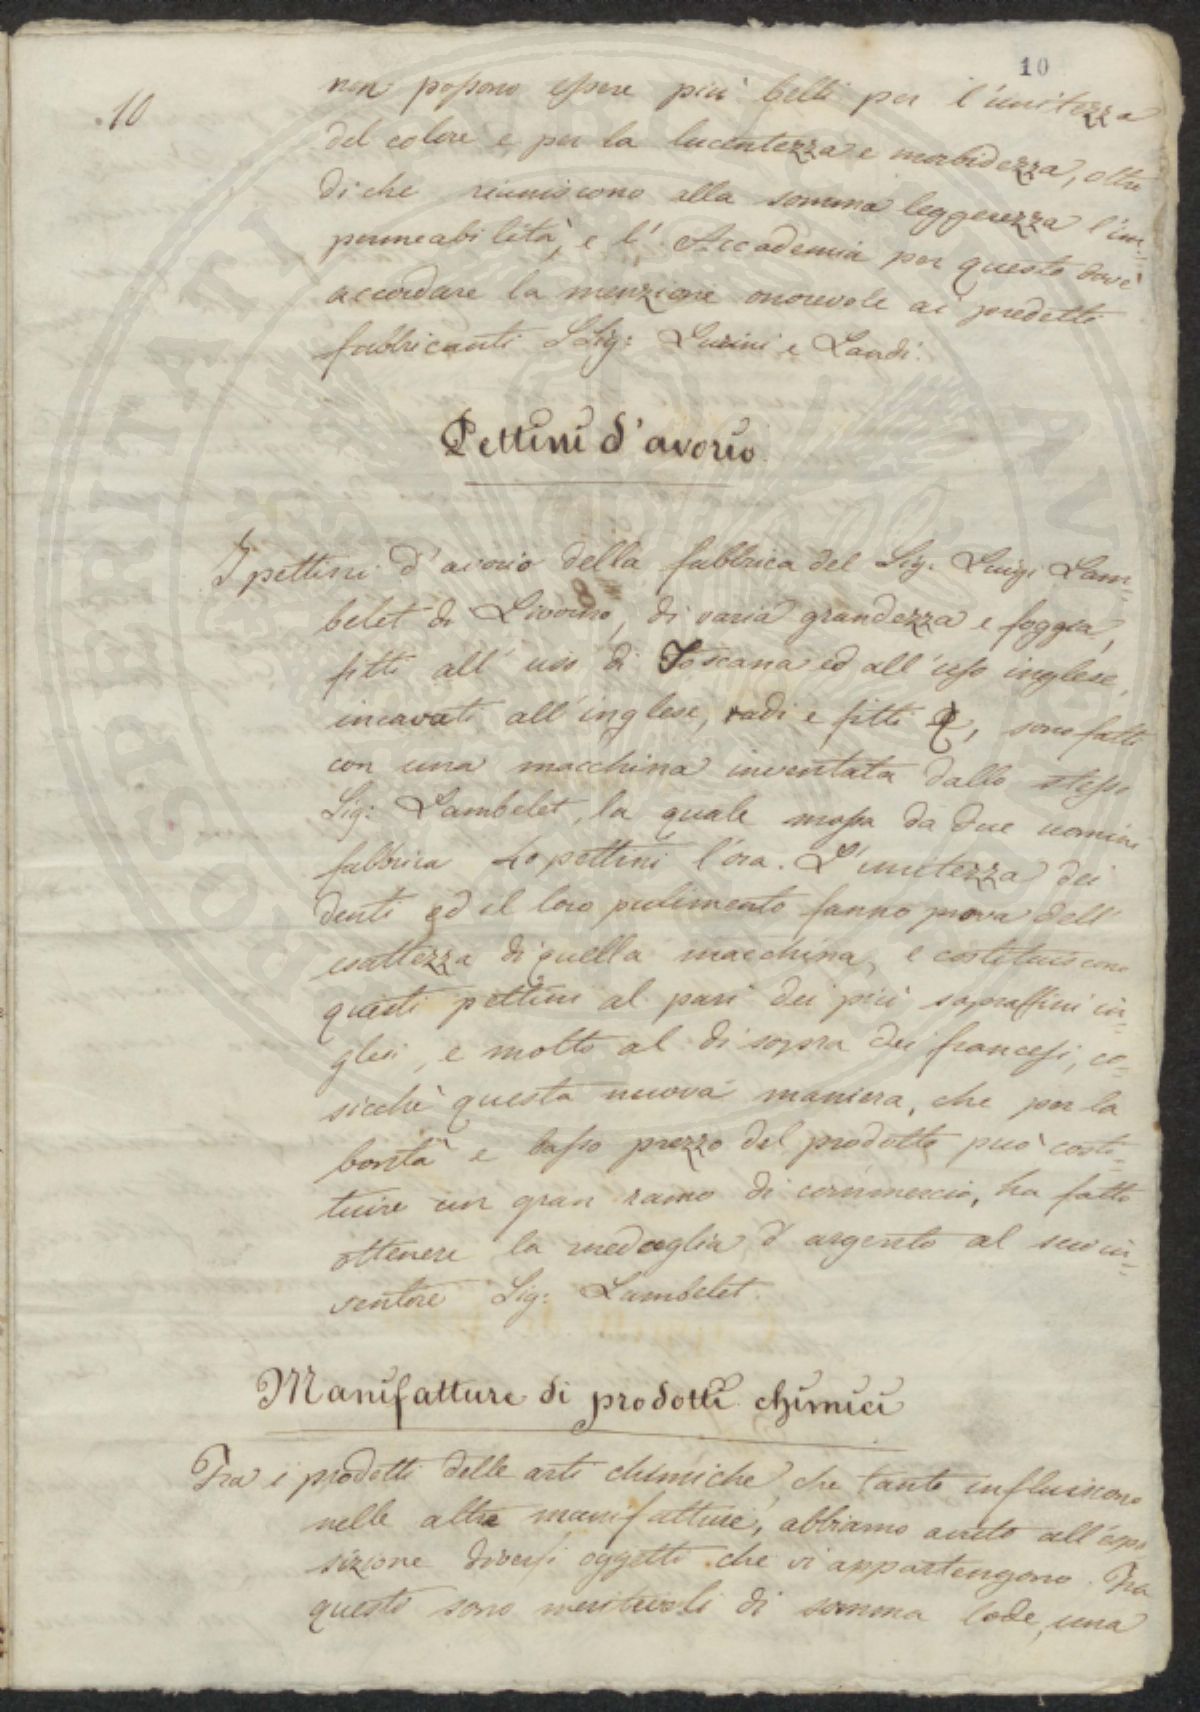 10
10
non possono essere più belli per l'unitezza
del colore e per la lucentezza e morbidezza, oltre
di che riuniscono alla somma leggerezza l'im=
permeabilità, e l'Accademia per questo dovè
accordare la menzione onorevole ai predetti
fabbricanti SSig: e Landi.
Pettini d'avorio
I pettini d'avorio della fabbrica del Sig: Luigi Lam=
belet di Livorno, di varia grandezza e foggia,
fitti all'uso di Toscana ed all'uso inglese,
incavati all'inglese, radi e fitti, sono fatti
con una macchina inventata dallo stesso
Sig: Lambelet, la quale mossa da due uomini
fabbrica 40 pettini l'ora. L'unitezza dei
denti ed il loro pulimento fanno prova dell'
esattezza di quella macchina, e costituiscono
questi pettini al pari dei più sopraffini in=
glesi, e molto al di sopra dei francesi, co=
sicchè questa nuova maniera, che per la
bontà e basso prezzo del prodotto può costi=
tuire un gran ramo di commercio, ha fatto
ottenere la medaglia d'argento al suo in=
ventore Sig: Lambelet.
Manifatture di prodotti chimici
Fra i prodotti delle arti chimiche, che tanto influiscono
nelle altre manifatture, abbiamo avuto all'espo
sizione diversi oggetti che vi appartengono. Fra
questi sono meritevoli di somma lode, una
PROSPERITATI AUGENDAE